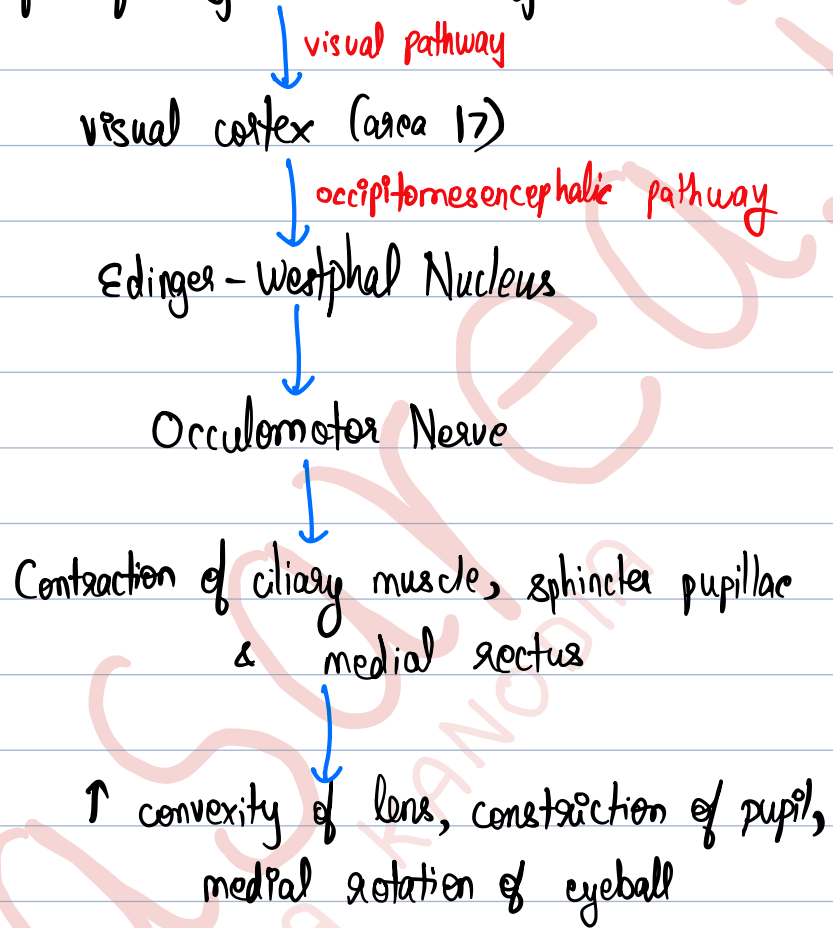 visual pathway
visual cortex (area 17)
occipitomesencephalic pathway
Edinger-Westphal Nucleus
Occulomotor Nerve
Contraction of ciliary muscle, sphincter pupillae
& medial rectus
↑ convexity of lens, constriction of pupil,
medial rotation of eyeball
KANODIA